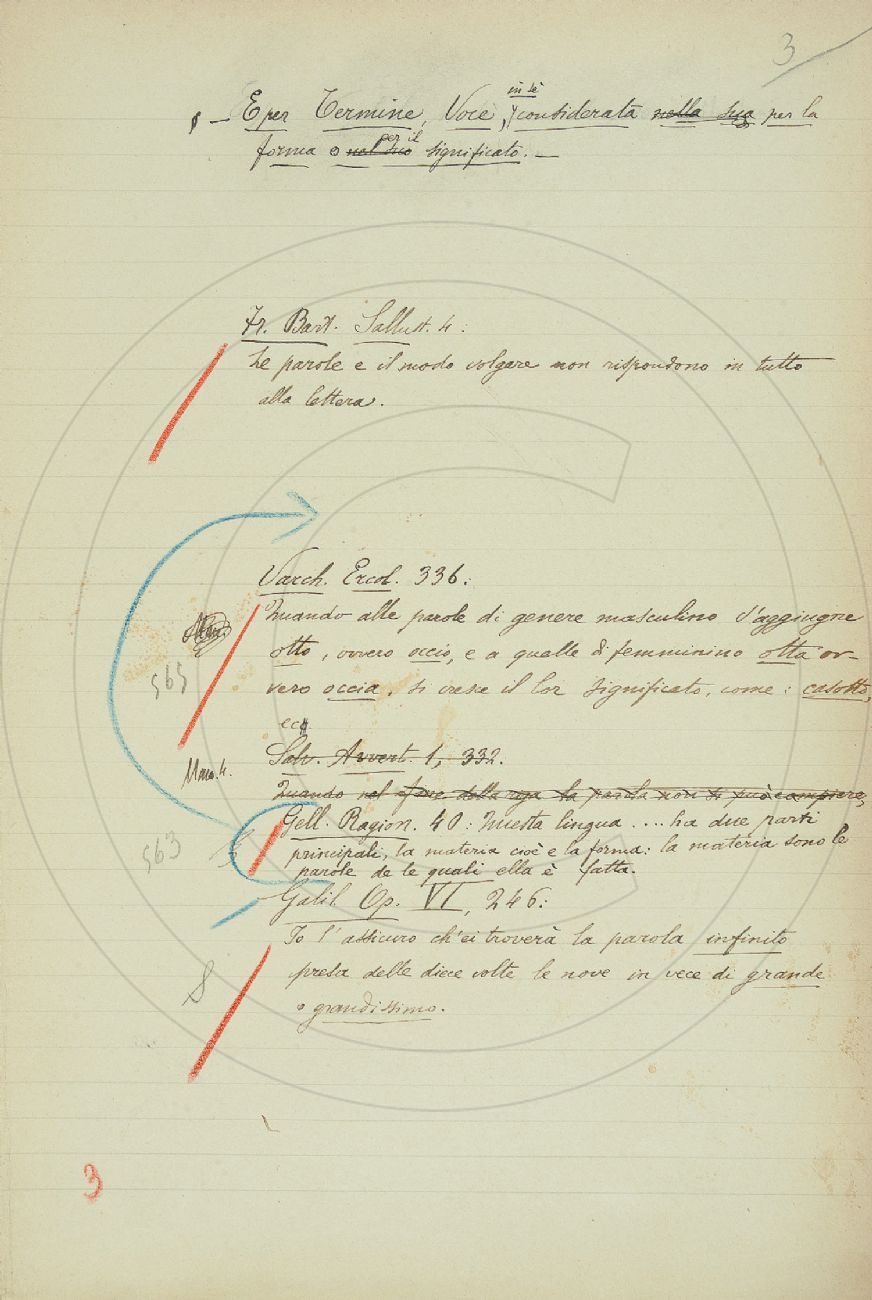 3
§ — E per Termine, Voce, in sè considerata nella sua per la
forma o nel suo per il significato. —
Fr. Bart. Sallust. 4:
Le parole e il modo volgare non rispondono in tutto
alla lettera.
Varch. Ercol. 336:
Quando alle parole di genere masculino s'aggiugne
otto, ovvero occio, e a quelle di femminino otta ov-
vero occia, si cresce il lor significato, come: casotto,
ec.
565
Salv. Avvert. 1, 332.
Quando nel fine della riga la parola non si può compiere,
Gell. Ragion. 40: Questa lingua .... ha due parti
principali, la materia cioè e la forma: la materia sono le
parole de le quali ella è fatta.
563
Galil. Op. VI, 246:
Io l'assicuro ch'ei troverà la parola infinito
presa delle diece volte le nove in vece di grande
o grandissimo.
3